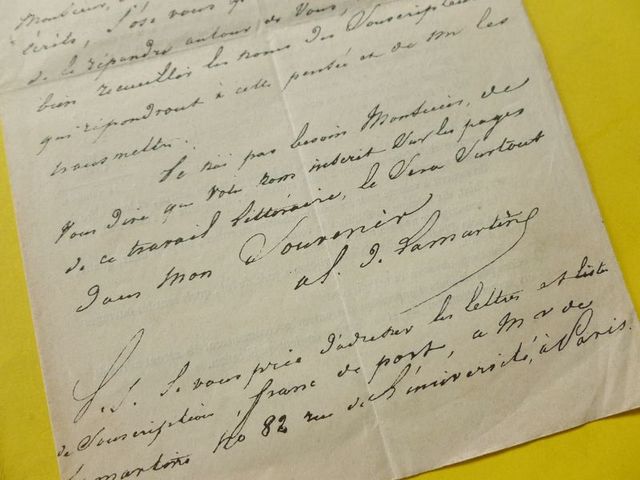 Monsieur,
écrits, J'ose vous
de le répandre autour de Vous,
bien recueillir les noms des Souscripteurs
qui répondront à cette pensée et de me les
transmettre.
Je n'ai pas besoin Monsieur, de
Vous dire que Votre nom inscrit Sur les pages
de ce travail littéraire, le Sera Surtout
dans mon Souvenir
al. D. Lamartine
P.S. Je vous prie d'adresser les lettres et liste
de Souscription, franc de port, a Mr de
Lamartine No 82 rue de l'université, à Paris.